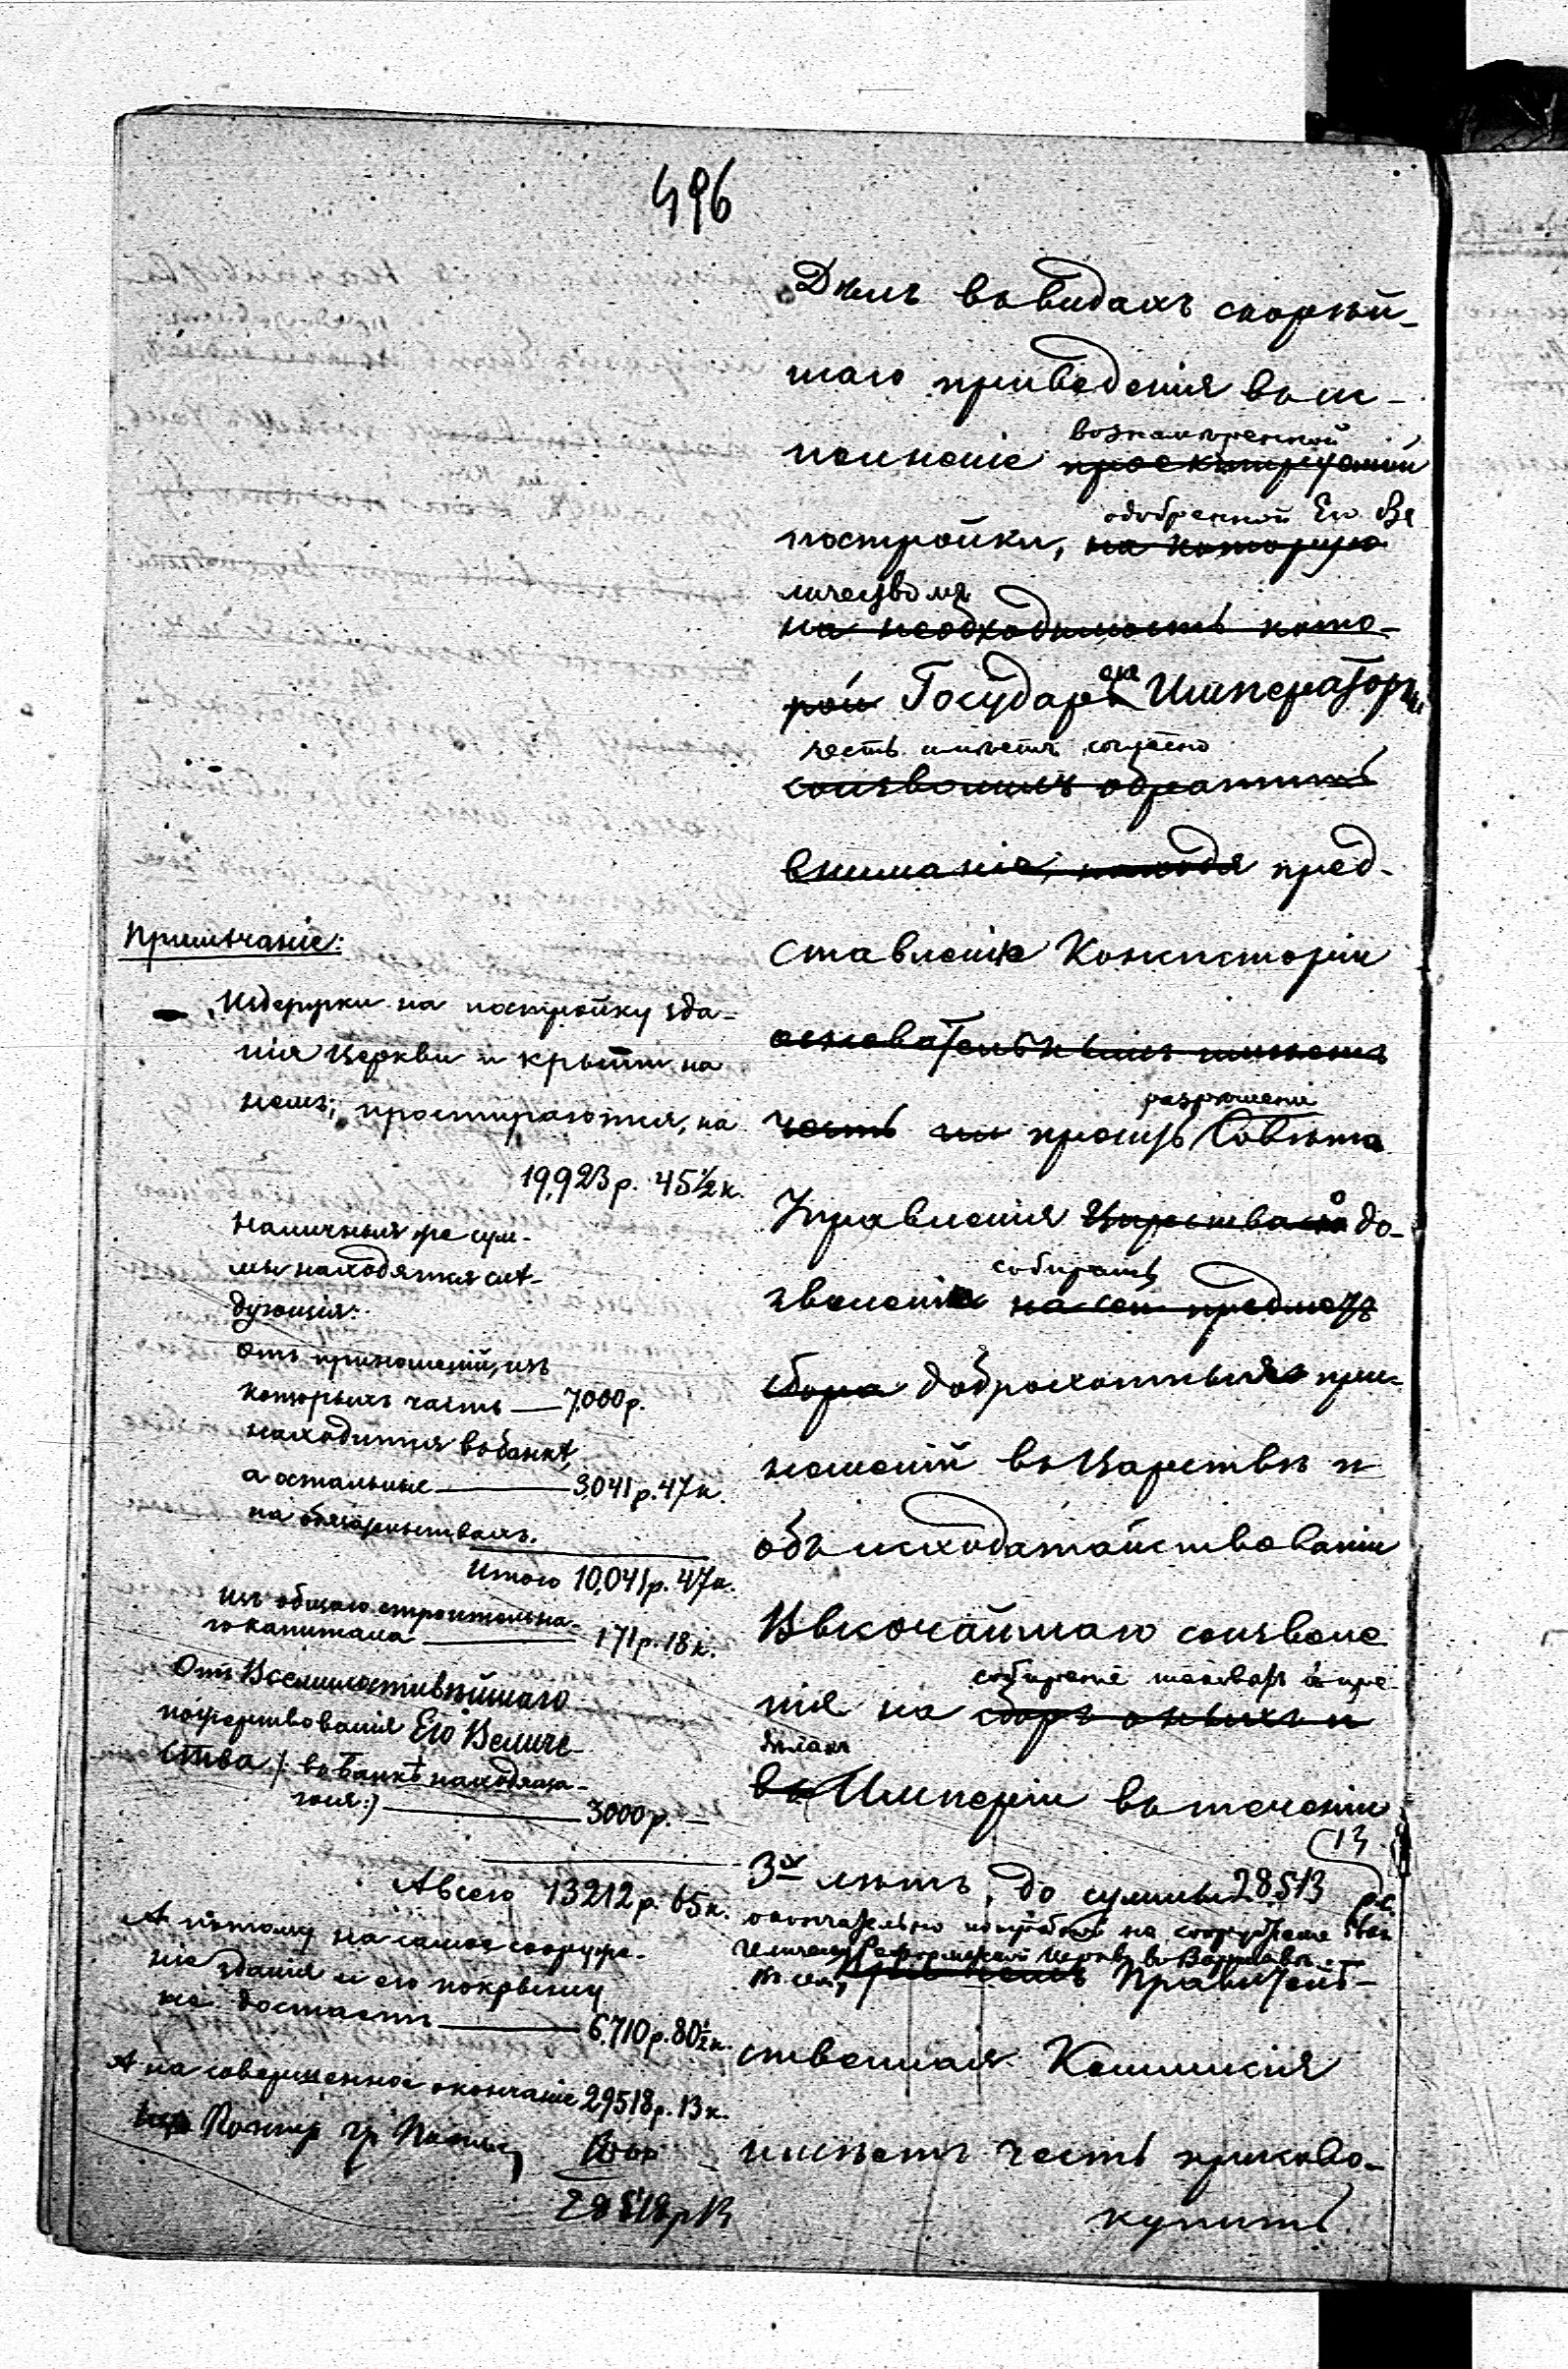 496
Дѣлъ въ видахъ скорѣй-
шаго приведенія въ ис-
возномѣренной
полненіе проектируемой
одобренной Его Ве
постройки, на которую
личествомъ
на необходимость кото-
рой Государя Императоръ
честь имѣетъ согласно
соизволилъ обратить
вниманіе, находя пред-
ставленіе Консисторіи
основательнымъ имѣетъ
разрѣшенія
честь просить Совѣта
Управленія Царства о до-
собирать
зволеніи на сей предметъ
сбора доброхотныхъ при-
ношеній въ Царствѣ и
объ исходатайствованіи
Высочайшаго соизволе
собираніе таковыхъ въ пре-
нія на сборъ оныхъ и
дѣлахъ
въ Имперіи въ теченіи
13
3хъ лѣтъ, до суммы 28513 рс.
окончательно потребной на сооруженіе Еван
гелической Реформатской Церкви въ Варшавѣ.
Къ сему Правитель-
ственная Коммисія
имѣетъ честь присово-
купить
Примѣчаніе:
Издержки на постройку зда-
нія Церкви и крыши на
немъ, простираются, на
19,923 р. 45½ к.
наличныя же сум-
мы находятся слѣ-
дующія:
Отъ приношеній, изъ
которыхъ часть — 7000 р.
находится въ банкѣ,
а остальные — 3041 р. 47 к.
на обязательствахъ.
Итого 10,041 р. 47 к.
изъ общаго строительна-
го капитала — 171 р. 18 к.
Отъ Всемилостивѣйшаго
пожертвованія Его Величе-
ства /: въ Банкѣ находяща-
гося :) — 3000 р. —
А всего 13212 р. 65 к.
А потому на самое сооруже-
ніе зданія и его покрышку
не достаетъ — 6,710 р. 80½ к.
А на совершенное окончаніе 29518 р. 13 к.
28518 р 13